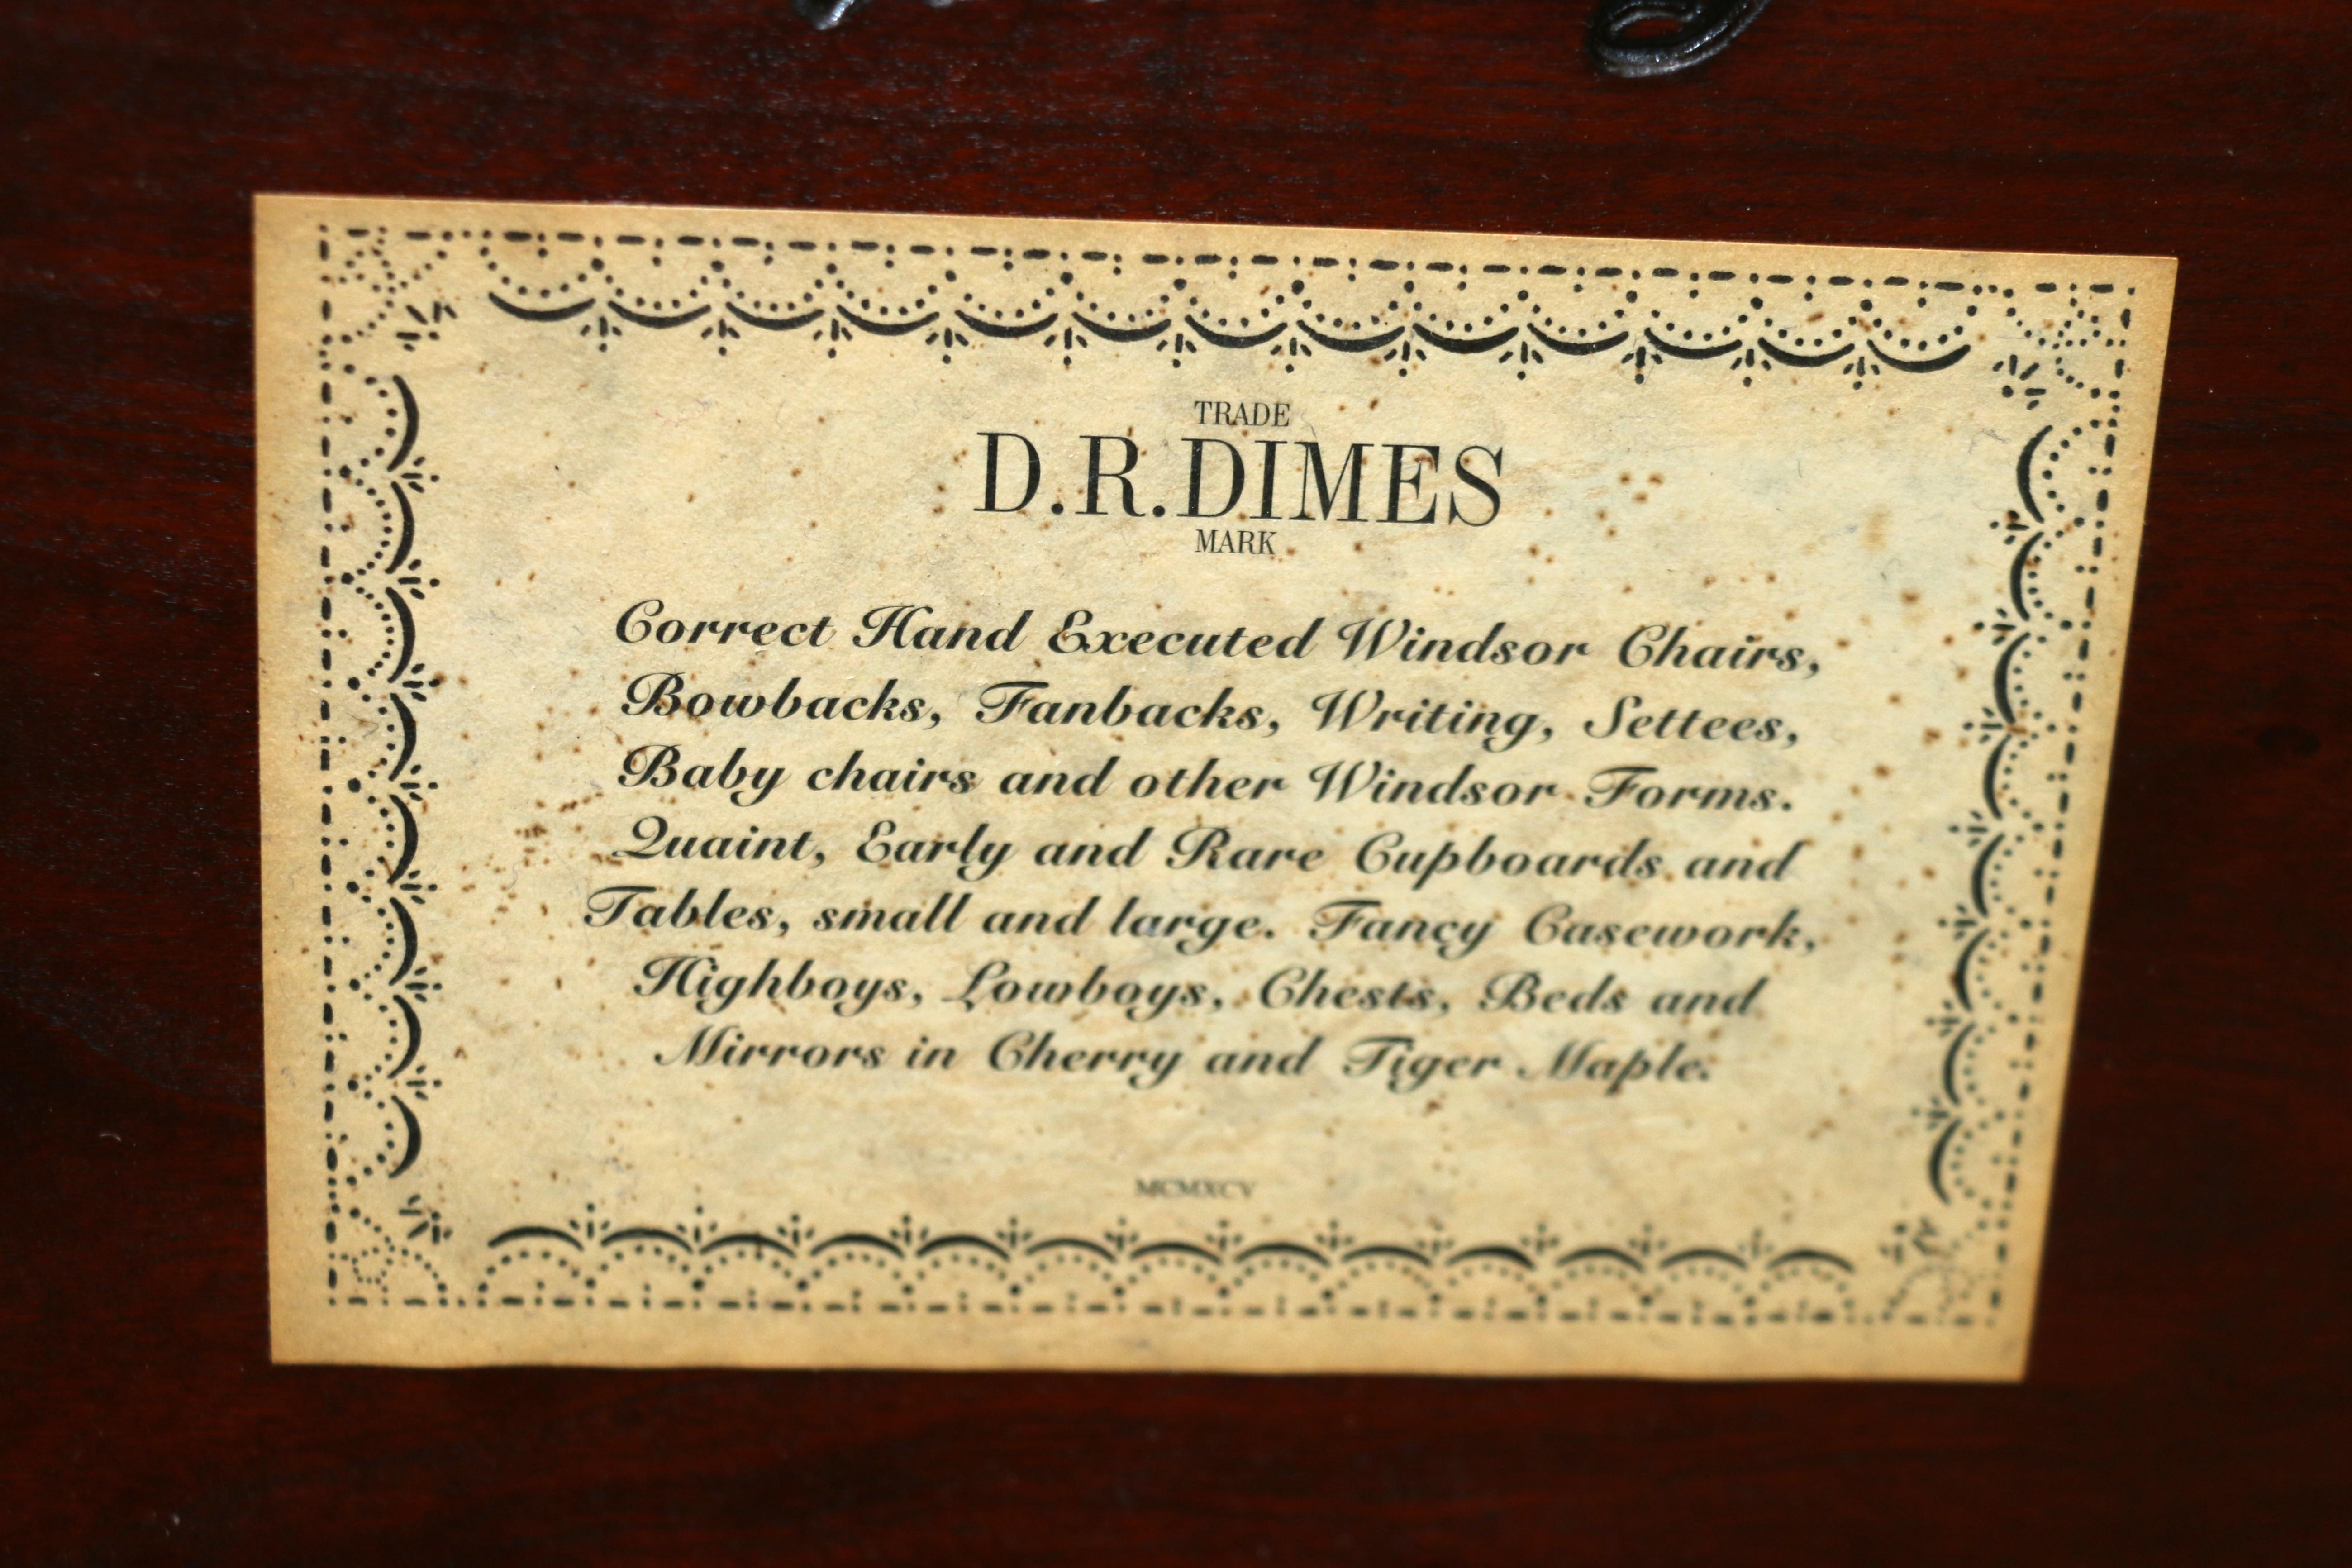 TRADE
D.R.DIMES
MARK
Correct Hand Executed Windsor Chairs,
Bowbacks, Fanbacks, Writing, Settees,
Baby chairs and other Windsor Forms.
Quaint, Early and Rare Cupboards and
Tables, small and large. Fancy Casework,
Highboys, Lowboys, Chests, Beds and
Mirrors in Cherry and Tiger Maple.
MCMXCV